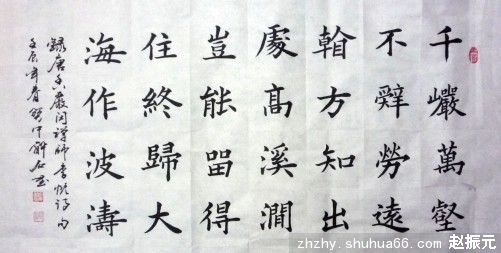 千巖萬壑
不辭勞遠
看方知出
處高溪澗
豈能畱得
住終歸大
海作波濤
錄唐香嚴閑禪師李忱詩句
壬辰年春
zhzhy.shuhua66.com 赵振元